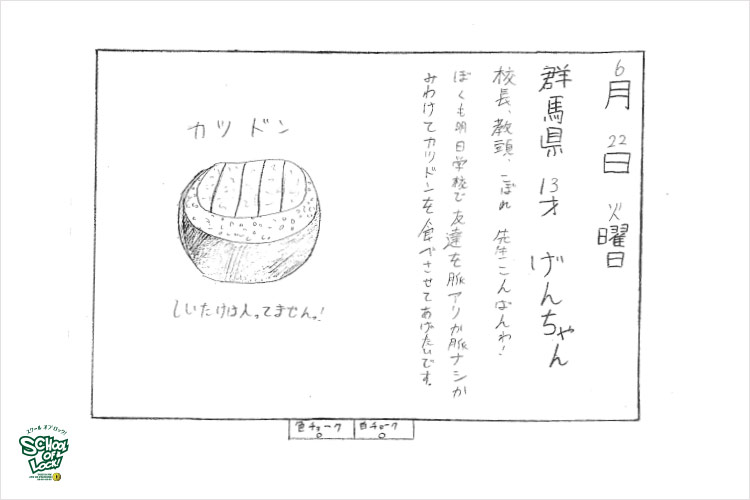 6月22日 火曜日
群馬県 13才 げんちゃん
校長、教頭、こばれ 先生こんばんわ!
ぼくも明日学校で友達を脈アリか脈ナシか
みわけてカツドンを食べさせてあげたいです。
カツ ドン
しいたけは入ってません。!
色チョーク
白チョーク
スクール オブ ロック!
SCHOOL
OF
LOCK!